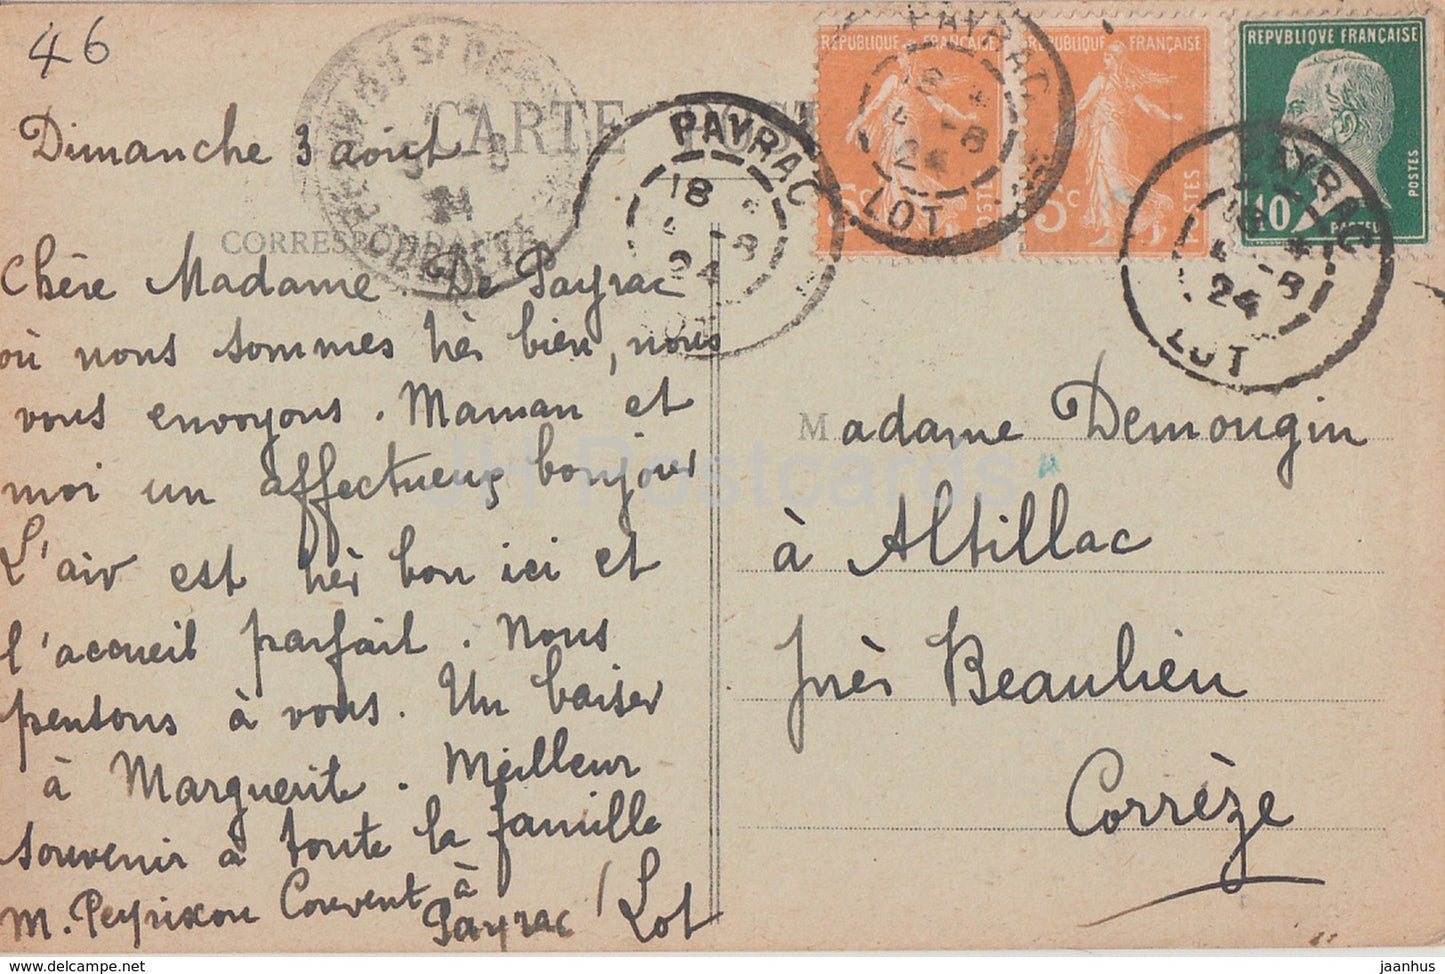 46
Dimanche 3 août
CARTE POST
CORRESPONDANCE
RÉPUBLIQUE FRANÇAISE
5c
POSTES
RÉPUBLIQUE FRANÇAISE
5c
POSTES
REPVBLIQVE FRANÇAISE
10
POSTES
PAYRAC
18
4 -8
24
LOT
PAYRAC
18
4 -8
24
LOT
PAYRAC
18
4 -8
24
LOT
Chère Madame. De Payrac
où nous sommes très bien, nous
vous envoyons. Maman et
moi un affectueux bonjour
L'air est très bon ici et
l'accueil parfait. Nous
pensons à vous. Un baiser
à Marguerite. Meilleur
souvenir à toute la famille
M. Peyrixou Couvent à
Payrac / Lot
Madame Demougin
à Altillac
près Beaulieu
Corrèze
JH Postcards
jaanhus
www.delcampe.net